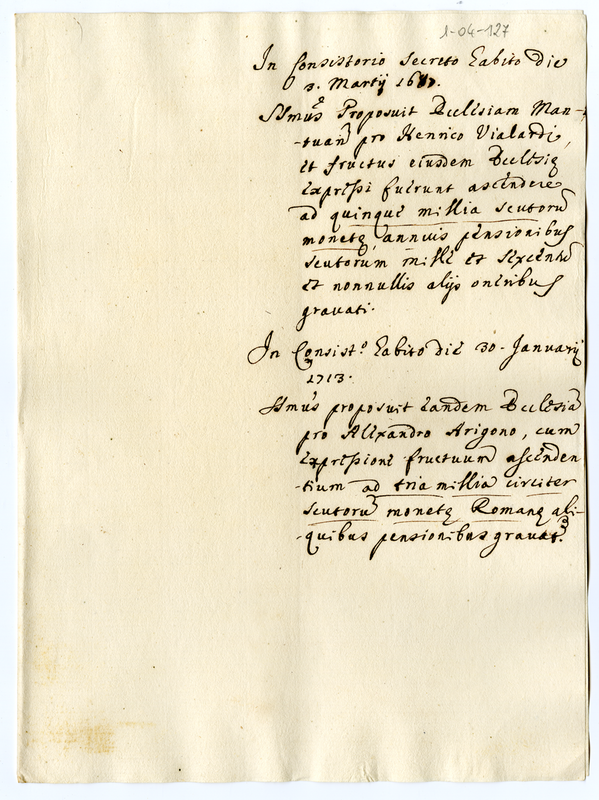 1-04-127
In Consistorio Secreto habito die
3. Martij
SSmus Proposuit Ecclesiam Man-
-tuan pro Henrico Vialardi,
et fructus eiusdem Ecclesię
expressi fuerunt ascendere
ad quinque millia scutorũ
monetę, annuis pensionibus
scutorum mille et sexcentũ
et nonnullis alijs oneribus
gravati.
In Consist.º habito die 30. January
1713.
SSmus proposuit eandem Ecclesiã
pro Alexandro Arigono, cum
expressione fructuum ascenden
-tium ad tria millia circiter
scutorũ monetę Romanę ali-
-quibus pensionibus gravat.